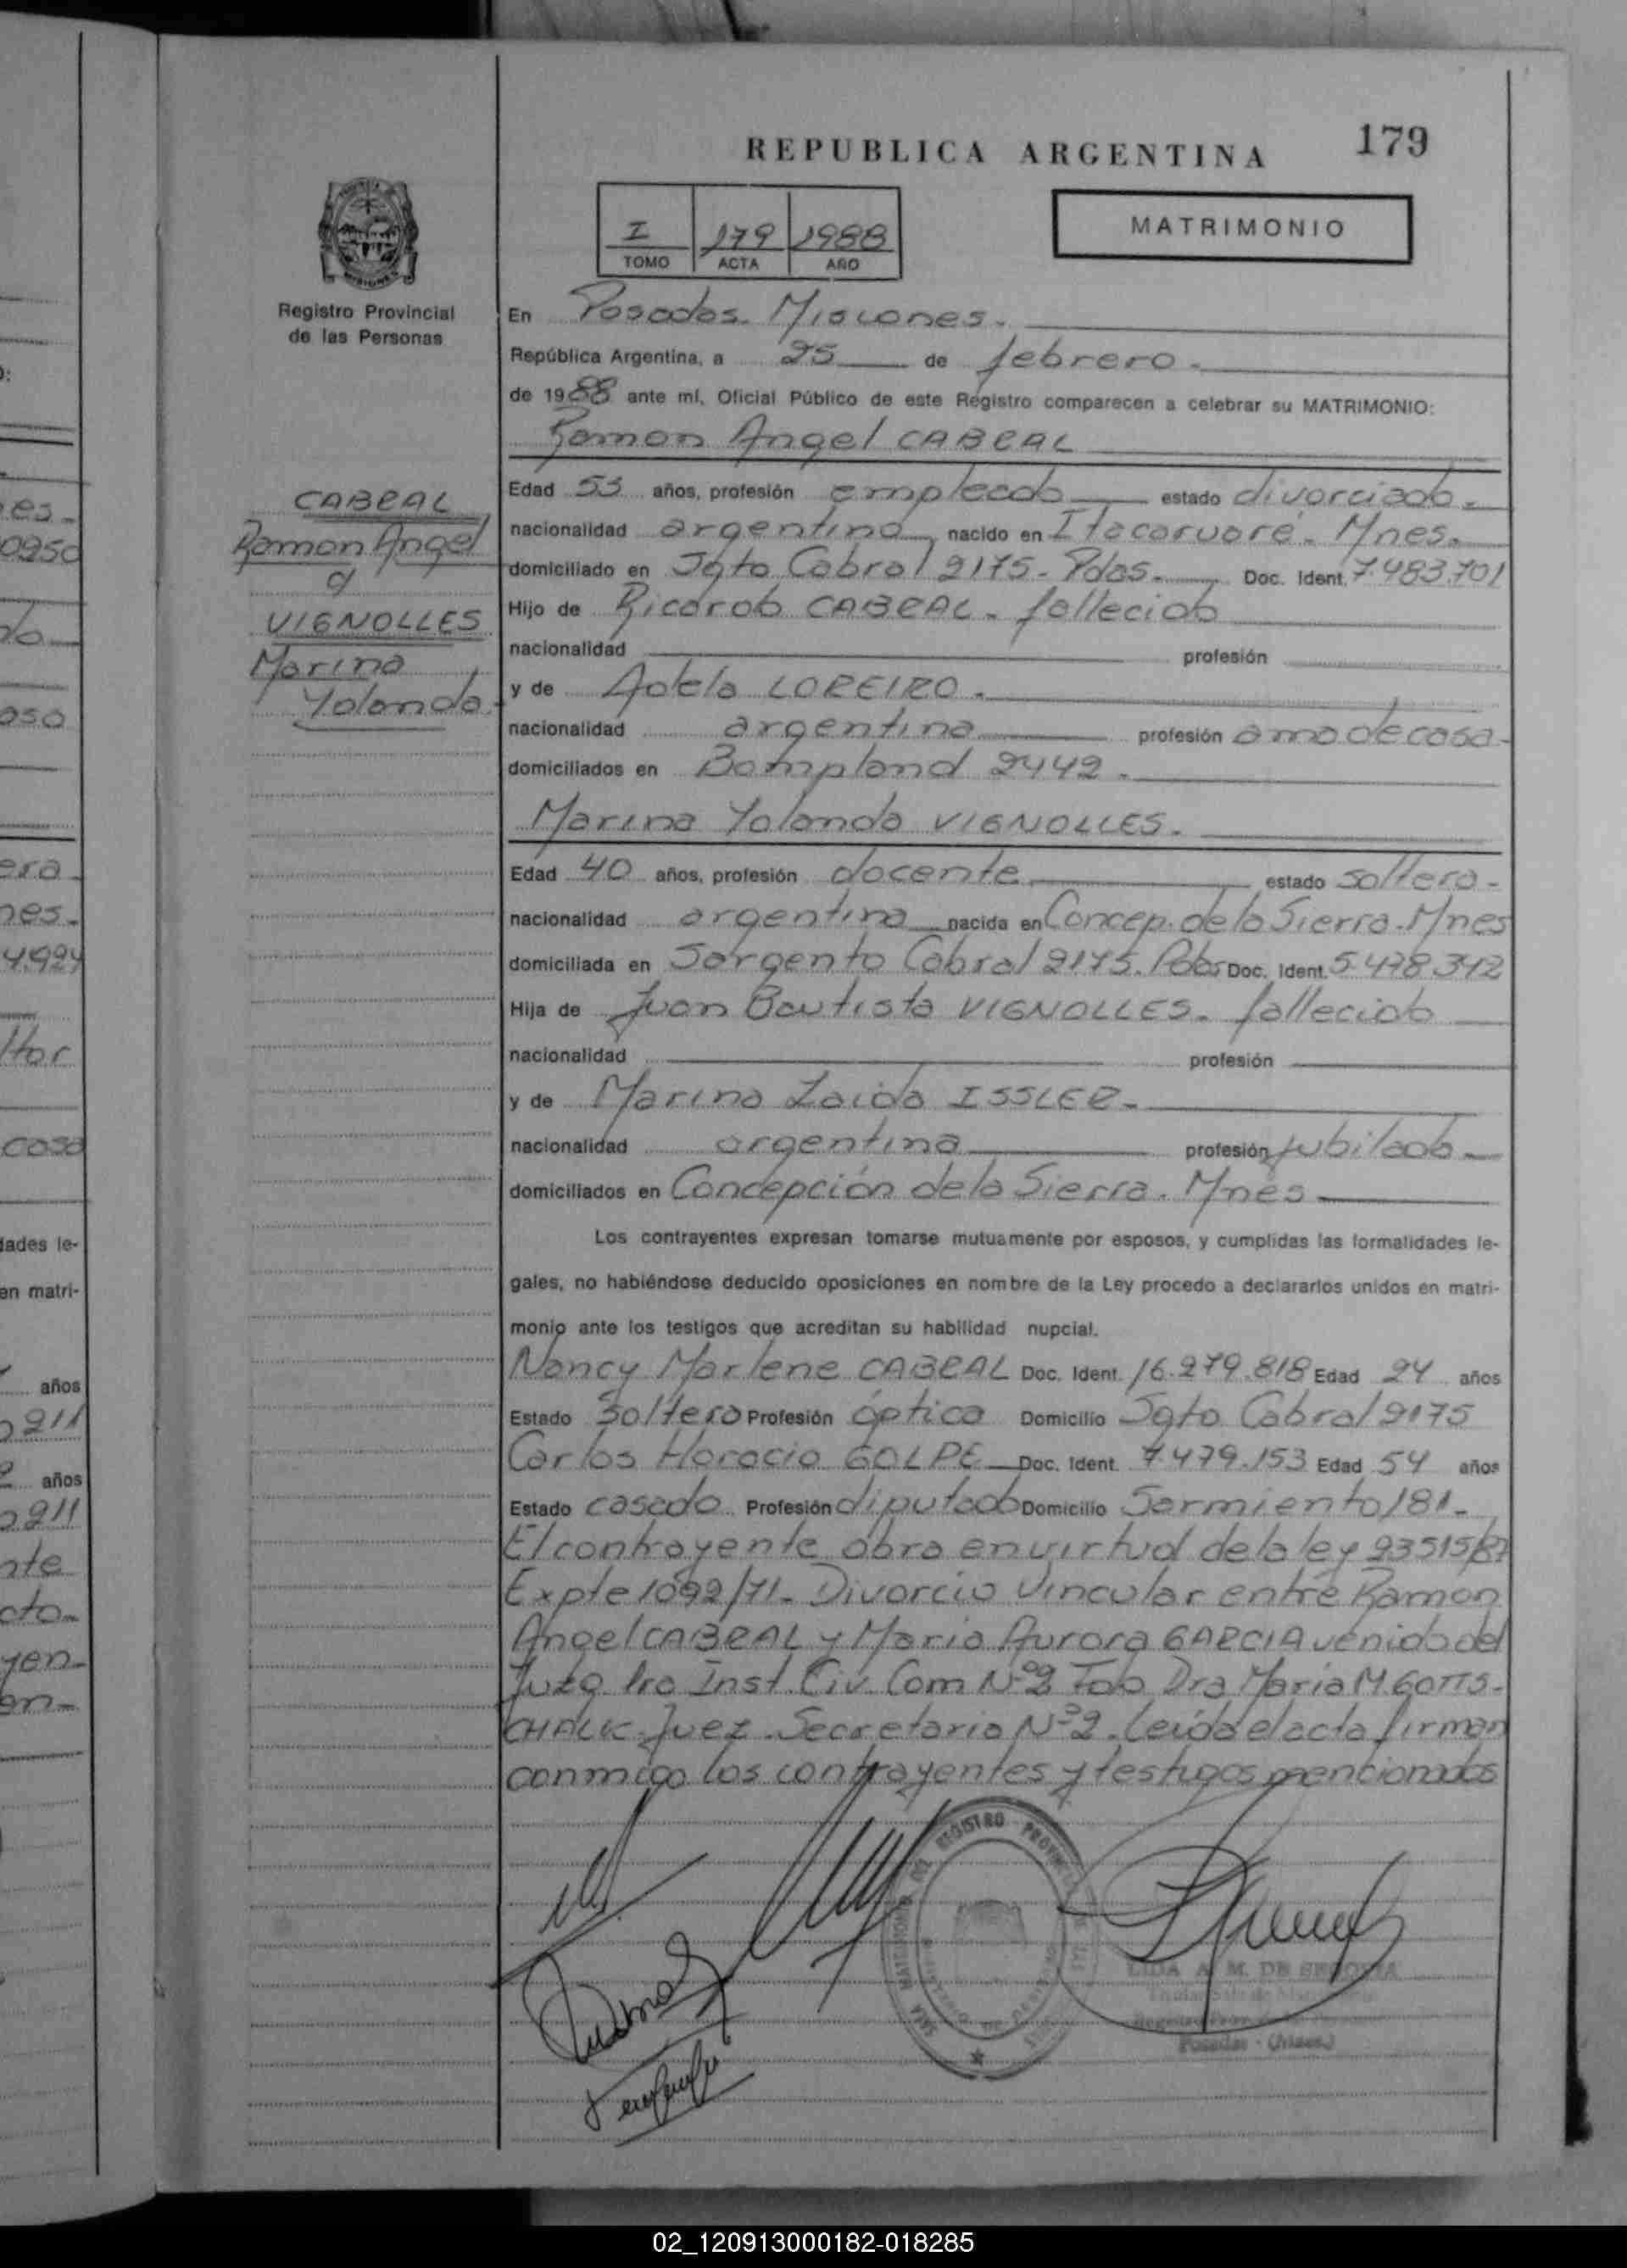 179
REPUBLICA ARGENTINA
MATRIMONIO
I 179 1988
TOMO ACTA AÑO
Registro Provincial
de las Personas
En Posadas Misiones.
República Argentina, a 25 de febrero.
de 1988 ante mí, Oficial Público de este Registro comparecen a celebrar su MATRIMONIO:
Ramon Angel CABRAL
CABRAL
Ramon Angel
VIGNOLLES
Marina
Yolanda.
Edad 53 años, profesión empleado estado divorciado.
nacionalidad argentino nacido en Itacaruaré. Mnes.
domiciliado en Sgto Cabral 2175. Pdas. Doc. Ident. 7.483.701
Hijo de Ricardo CABRAL. fallecido
nacionalidad profesión
y de Adela LOREIRO.
nacionalidad argentina profesión ama de casa.
domiciliados en Bompland 2442.
Marina Yolanda VIGNOLLES.
Edad 40 años, profesión docente estado soltera.
nacionalidad argentina nacida en Concep. de la Sierra. Mnes
domiciliada en Sargento Cabral 2175. Pdas Doc. Ident. 5.478.342
Hija de Juan Bautista VIGNOLLES. fallecido
nacionalidad profesión
y de Marina Zaida ISSLER.
nacionalidad argentina profesión jubilada.
domiciliados en Concepción de la Sierra. Mnes
Los contrayentes expresan tomarse mutuamente por esposos, y cumplidas las formalidades le-
gales, no habiéndose deducido oposiciones en nombre de la Ley procedo a declararlos unidos en matri-
monio ante los testigos que acreditan su habilidad nupcial.
Nancy Marlene CABRAL Doc. Ident. 16.279.818 Edad 24 años
Estado soltera Profesión óptica Domicilio Sgto Cabral 2175
Carlos Horacio GOLPE Doc. Ident. 7.479.153 Edad 54 años
Estado casado Profesión diputado Domicilio Sarmiento 181.
El contrayente obra en virtud de la ley 23515/87
Expte 1092/71. Divorcio Vincular entre Ramon
Angel CABRAL y Maria Aurora GARCIA venido del
Juzg 1ra Inst. Civ. Com Nº2 Fdo Dra Maria M. GOTTS-
CHALK. Juez. Secretaria Nº2. Leida el acta firman
conmigo los contrayentes y testigos mencionados
LIDA A. M. DE SEGOVIA
Posadas - (Mnes.)
02_120913000182-018285